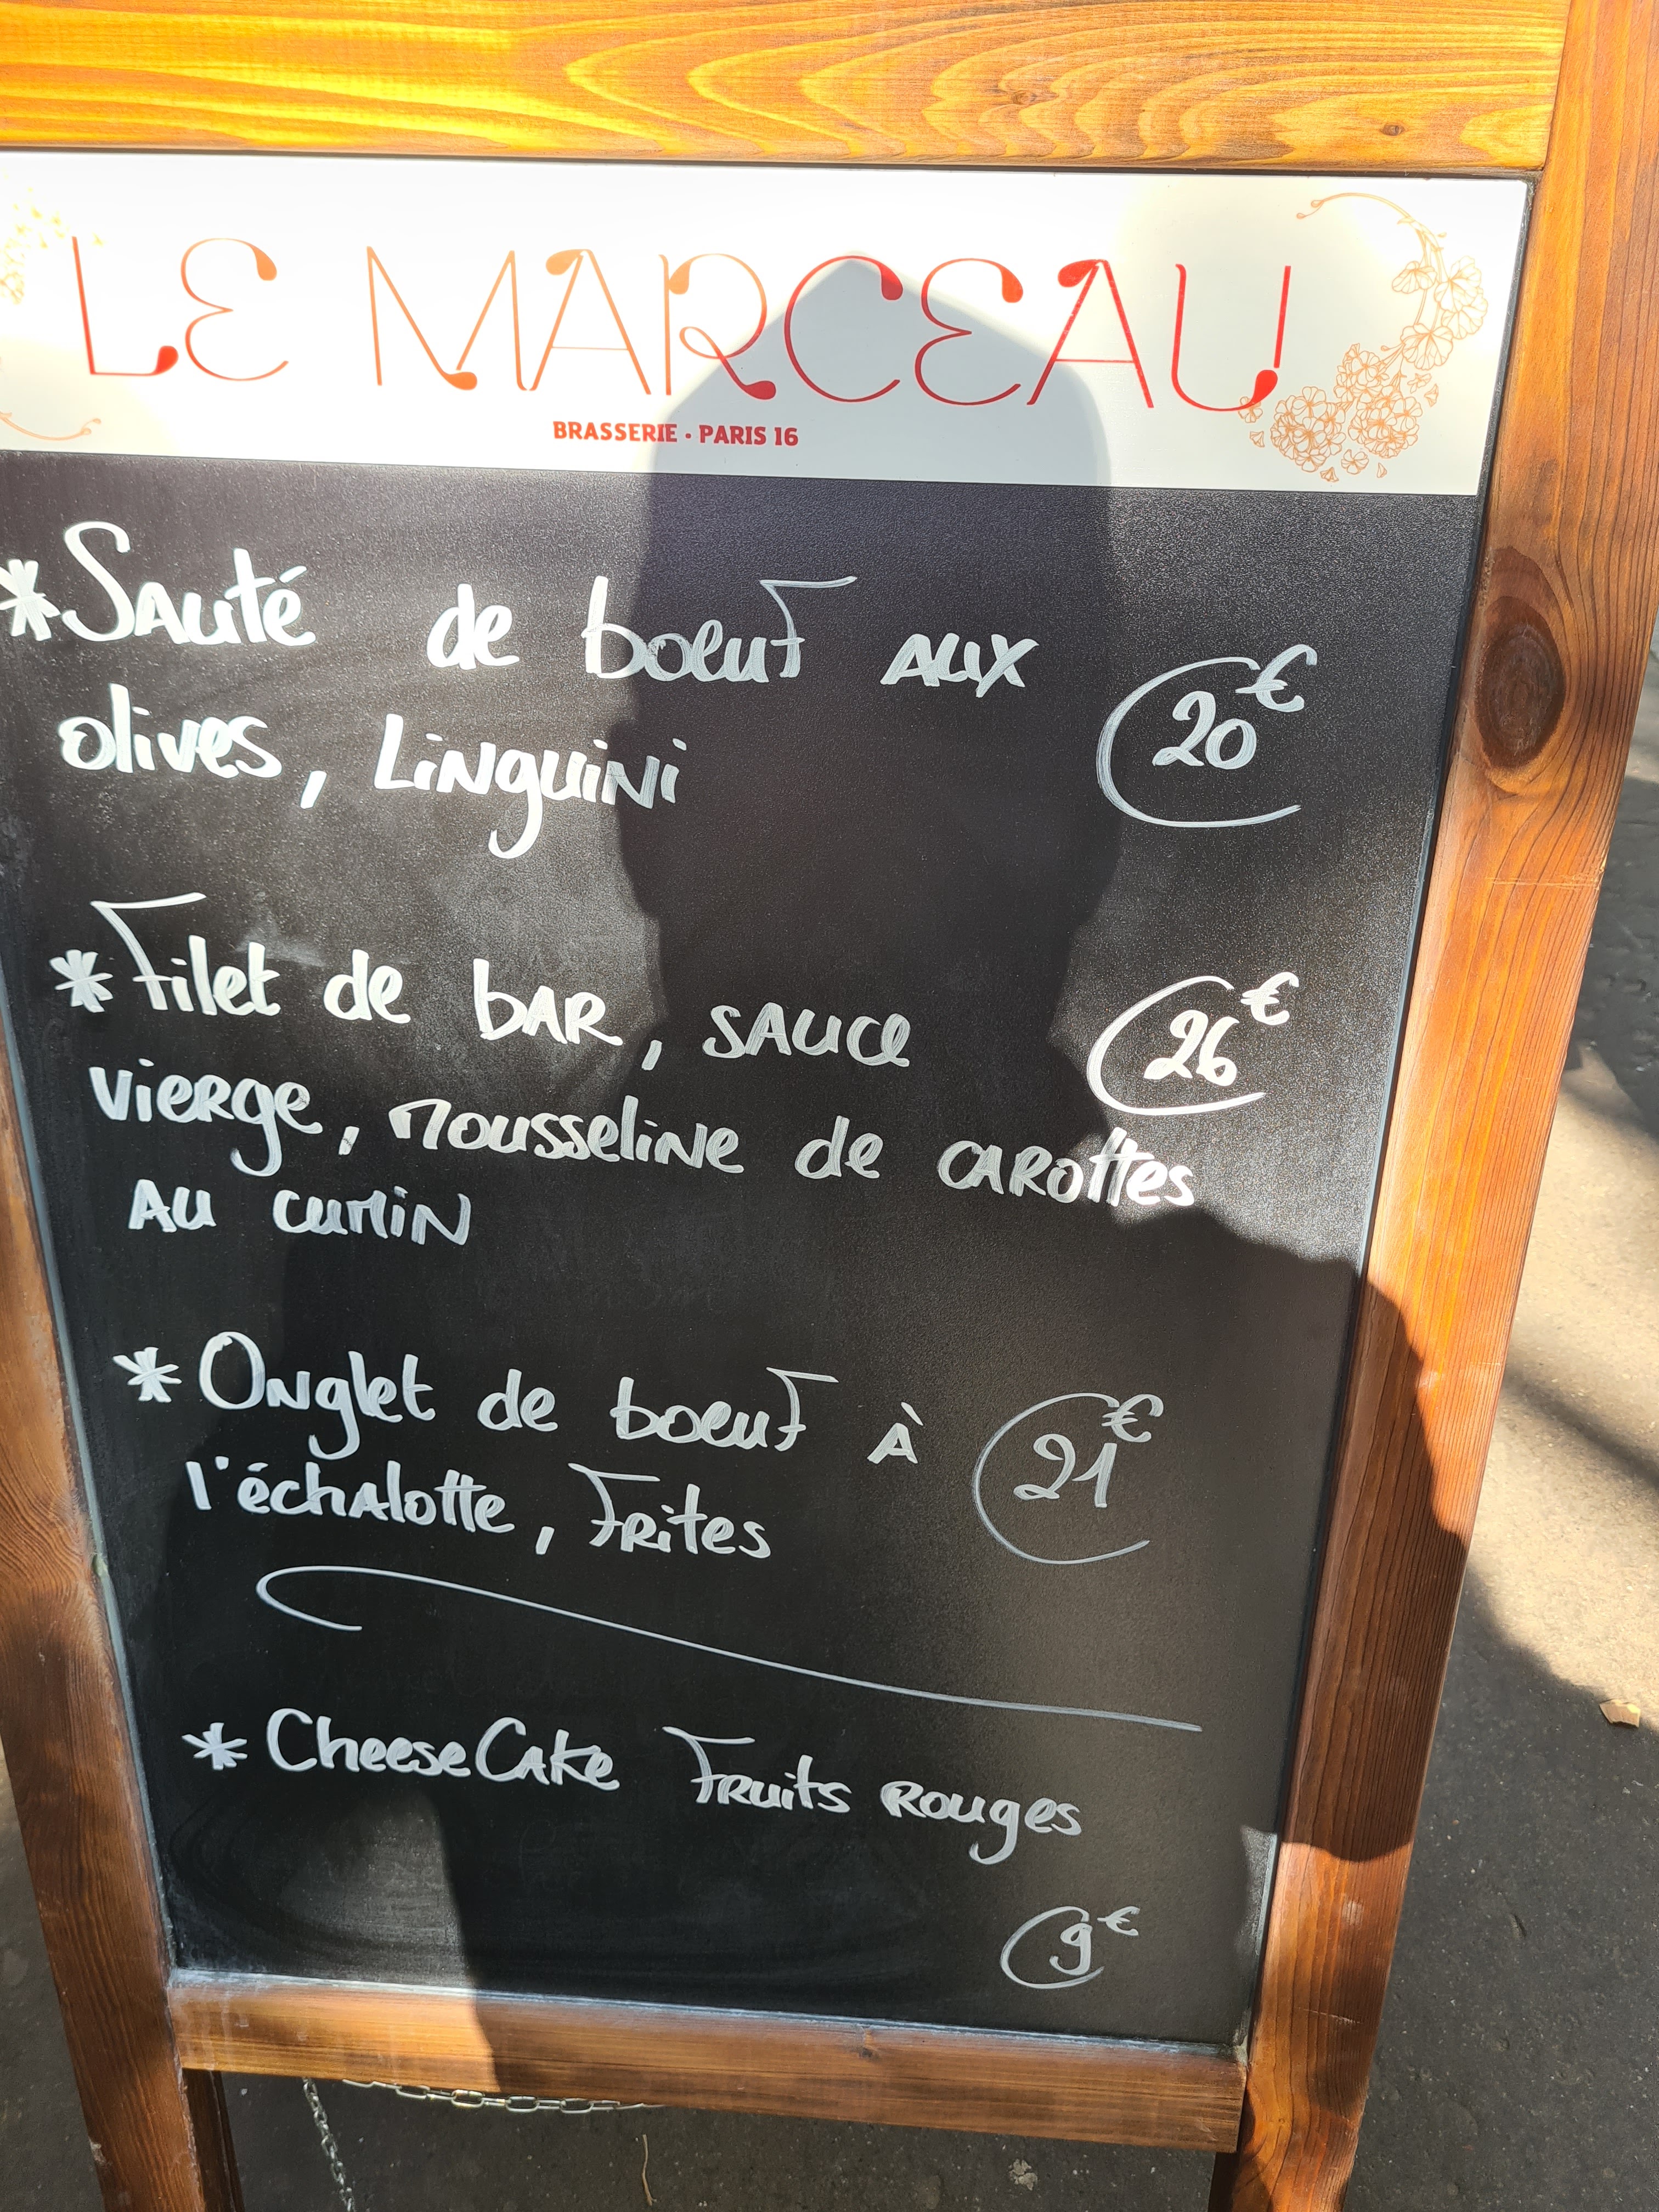 LE MARCEAU
BRASSERIE • PARIS 16
*Sauté de boeuf aux
olives, Linguini
20€
*Filet de bar, sauce
26€
vierge, mousseline de carottes
au cumin
*Onglet de boeuf à
l'échalotte, Frites
21€
*CheeseCake Fruits Rouges
9€